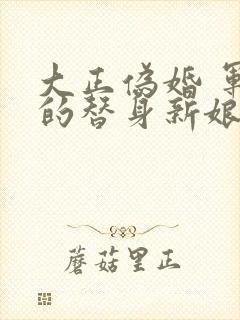 大正偽婚 軍
的替身新娘
蘑菇里正